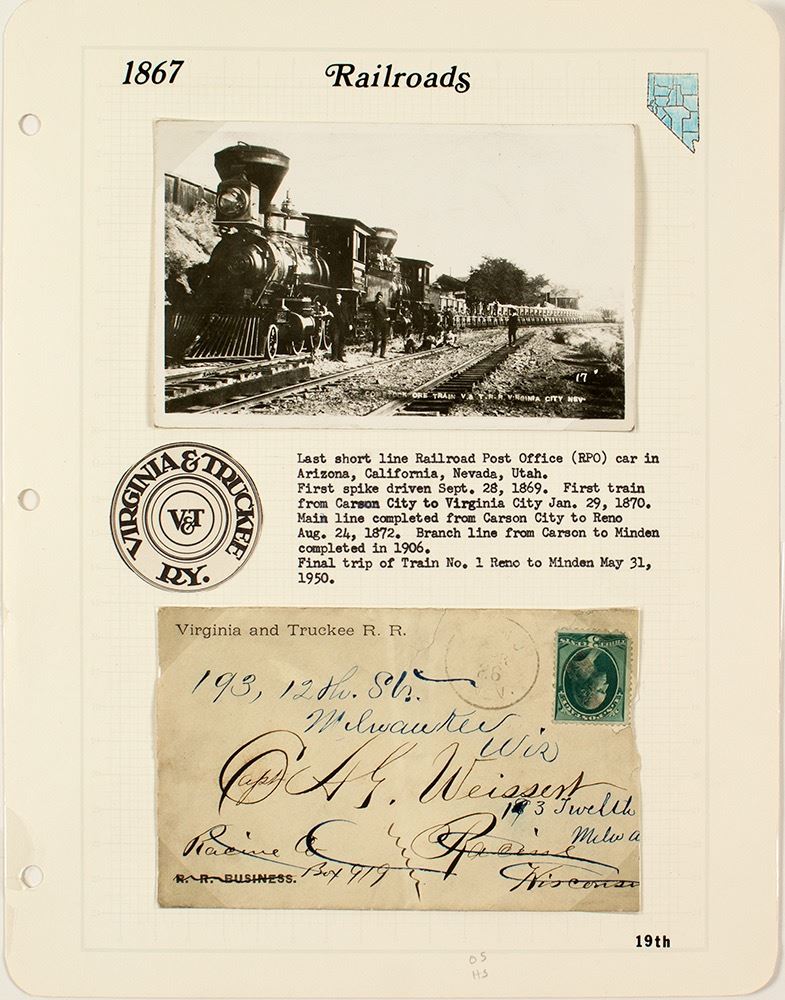 1867
Railroads
17
ORE TRAIN V & T. R.R VIRGINIA CITY NEV
VIRGINIA & TRUCKEE
V&T
RY.
Last short line Railroad Post Office (RPO) car in
Arizona, California, Nevada, Utah.
First spike driven Sept. 28, 1869. First train
from Carson City to Virginia City Jan. 29, 1870.
Main line completed from Carson City to Reno
Aug. 24, 1872. Branch line from Carson to Minden
completed in 1906.
Final trip of Train No. 1 Reno to Minden May 31,
1950.
Virginia and Truckee R. R.
193, 12th. Str.
Milwaukee
Wis
Capt A G. Weissert
193 Twelth
Milwa
Racine Co
Racine
R. R. BUSINESS.
Box 919
Wisconsi
19th
OS
HS